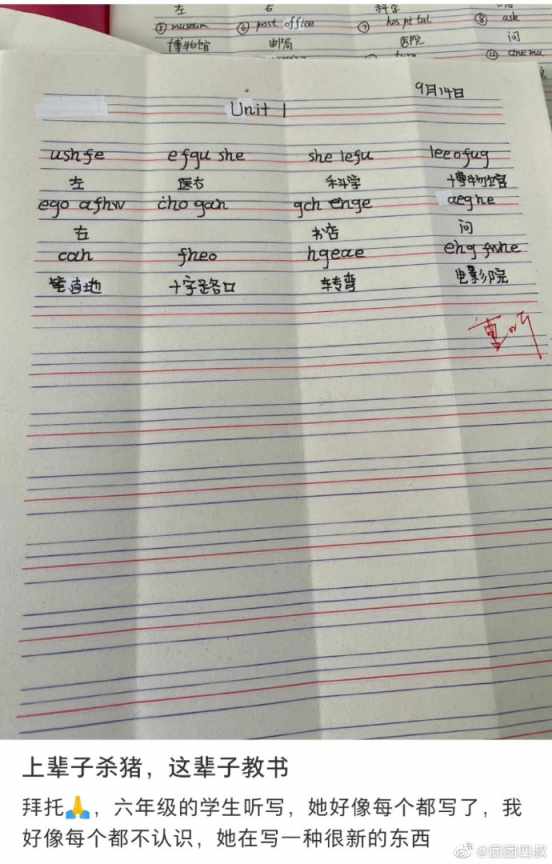 左 右 科学
⑤ museum ⑥ post office ⑦ hospital ⑧ ask
博物馆 邮局 医院 问
cinema
9月14日
Unit 1
ushfe efgu she she lefu leeofug
左 医右 科学 博物馆
ego afhw cho gan gch enge aeghe
右 书店 问
cah fheo hgeae ehg fwhe
十字路口 转弯 电影院
重听
上辈子杀猪，这辈子教书
拜托🙏，六年级的学生听写，她好像每个都写了，我
好像每个都不认识，她在写一种很新的东西